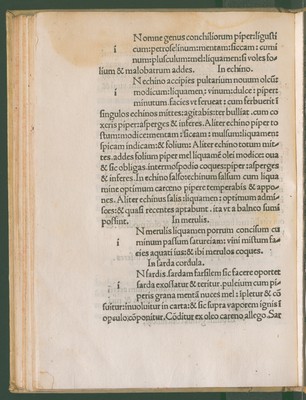 N omne genus conchiliorum piper: ligusti
i cum: petroselinum: mentam: siccam: cumi
num: plusculum: mel: liquamen: si voles fo-
lium & malobatrum addes. In echino.
N echino accipies pultarium nouum oleū:
i modicum: liquamen: vinum: dulce: piper:
minutum facies vt ferueat: cum ferbuerit ī
singulos echinos mittes: agitabis: ter bulliat .cum co
xeris piper: asperges & inferes. Aliter echino piper to
stum: modice: mentam: siccam: mulsum: liquamen:
spicam indicam: & folium: Aliter echino totum mit-
tes. addes folium piper mel liquamē olei modicē oua
& sic obligas. in termospodio coques: piper: asperges
& inferes. In echino salso: echinum salsum cum liqua
mine optimum careno pipere temperabis & appo-
nes. Aliter echinus salis: liquamen: optimum admi-
sces: & quasi recentes aptabunt. ita vt a balneo sumi
possint. In merulis.
N merulis liquamen porrum concisum cu
i minum passum satureiam: vini mistum fa-
cies aquati ius: & ibi merulos coques.
In sarda cordula.
N sardis. sardam farsilem sic facere oportet
i sarda exossatur & teritur. puleium cum pi-
peris grana mentā nuces mel: ipletur & cō
suitur: inuoluitur in carta: & sic supra vaporem ignis ī
opculo cōponitur. Cōditur ex oleo careno allego. Sar